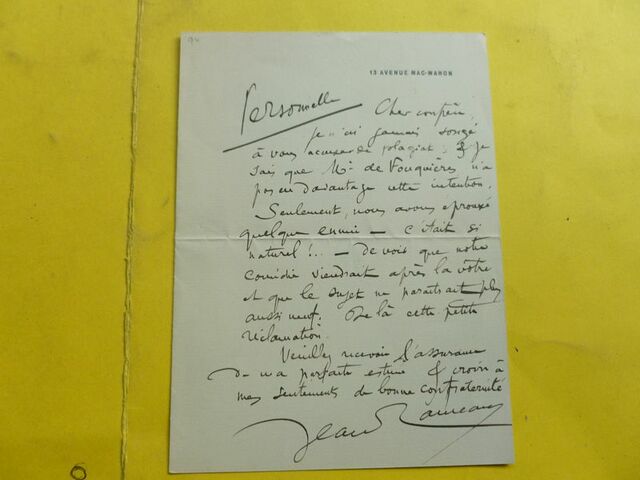 94
13 AVENUE MAC-MAHON
Personnelle
Cher confrère,
je n'ai jamais songé
à vous accuser de plagiat, & je
sais que Mr de Fouquières n'a
pas eu davantage cette intention.
Seulement, nous avons éprouvé
quelque ennui – c'était si
naturel!.. – de voir que notre
comédie viendrait après la vôtre
et que le sujet ne paraîtrait plus
aussi neuf. De là cette petite
réclamation.
Veuillez recevoir l'assurance
de ma parfaite estime & croire à
mes sentiments de bonne confraternité
Jean Rameau